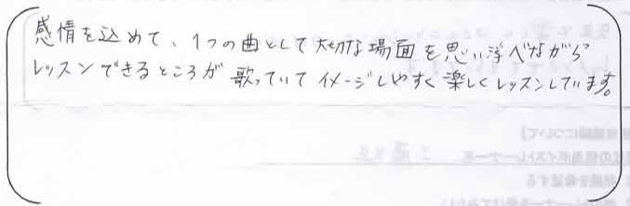 感情を込めて、1つの曲として大切な場面を思い浮べながら
レッスンできるところが歌っていてイメージしやすく楽しくレッスンしています。